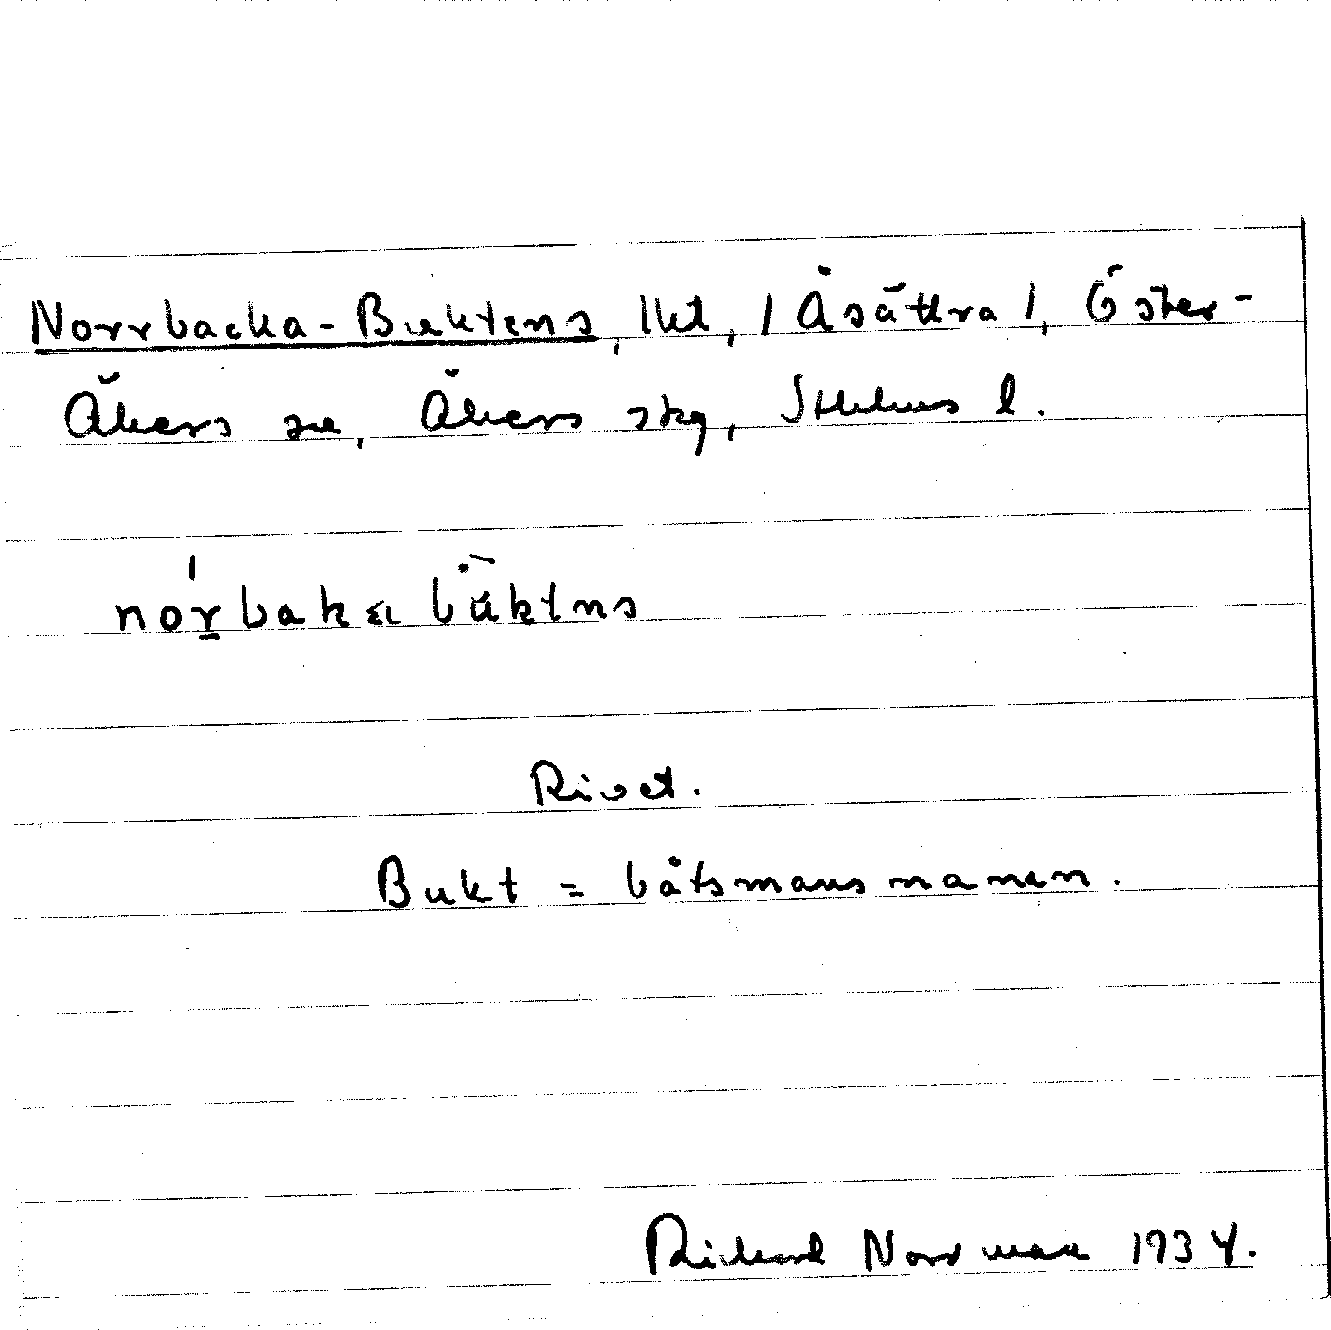 Norrbacka-Buktens, lht, / Åsättra /, Öster-
Åkers sn, Åkers skg, Sthlms l.
nórbaka båktns
Rivet.
Bukt = båtsmansnamn.
Rickard Norrman 1934.